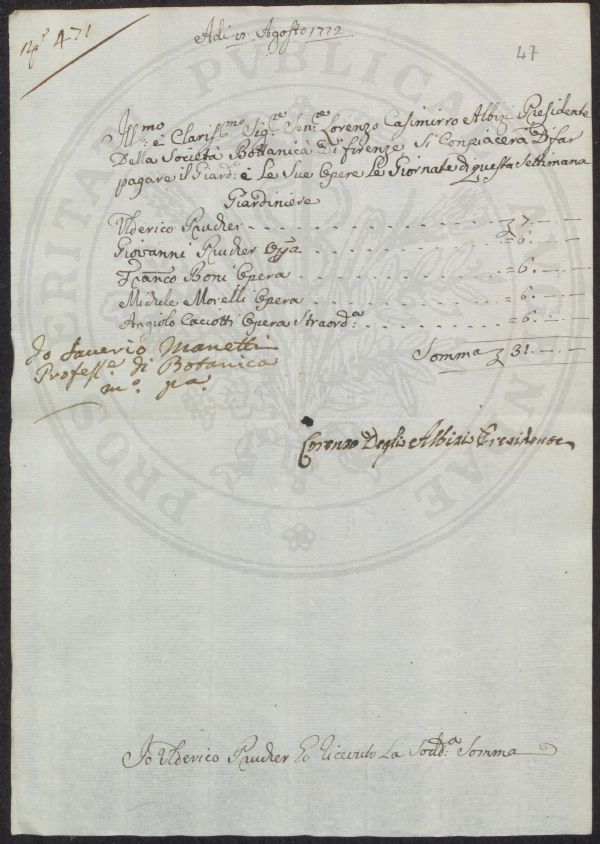 N.º 471
Adi Agosto 1772
47
Ill.mo e Clariss.mo Sig.re Sen.re Lorenzo Casimirro Albizi Presidente
Della Società Bottanica Di firenze Si Conpiacerà Di far
pagare il Giard: e Le Sue Opere Le Giornate di questa Settimana
Giardiniere
Ulderico Prucker 7. - -
Giovanni Prucker Opa = 6. - -
Franco Boni Opera = 6. - -
Michele Morelli Opera = 6. - -
Angiolo Caciotti Opera Straord.a = 6. - -
Somma 31. - -
Io Saverio Manetti
Profess.e di Botanica
m.o pa.
Lorenzo Degli Albizi Presidente
Io Ulderico Prucker Ho Ricevuto La Sodd.a Somma
PRUSPERITATI PUBLICAE AUGENDAE